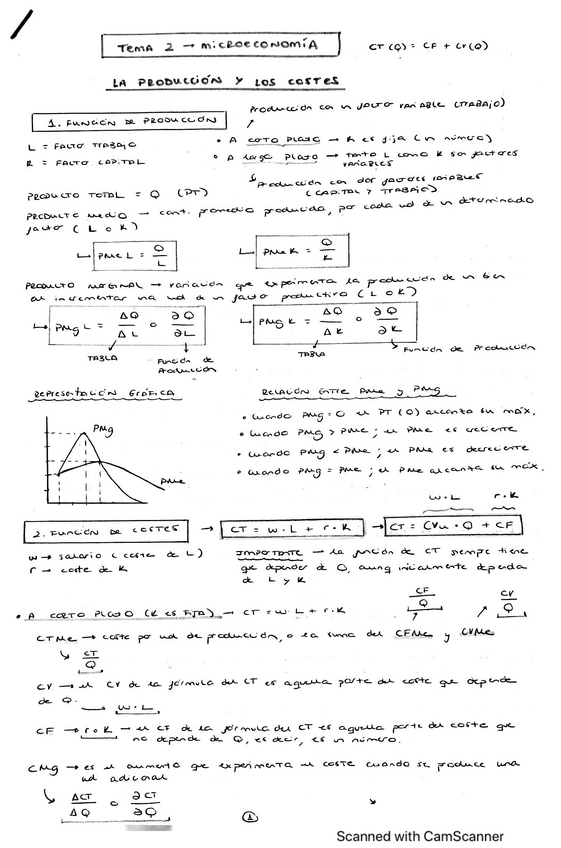 TEMA 2 → MICROECONOMÍA
CT(Q) = CF + CV(Q)
LA PRODUCCIÓN Y LOS COSTES
1. FUNCIÓN DE PRODUCCIÓN
Producción con un factor variable (TRABAJO)
L = FACTOR TRABAJO
K = FACTOR CAPITAL
• A CORTO PLAZO → K es fija (un número)
• A largo PLAZO → tanto L como K son factores
variables
↳ Producción con dos factores variables
(CAPITAL Y TRABAJO)
PRODUCTO TOTAL = Q (PT)
PRODUCTO medio → cant. promedio producida, por cada ud de un determinado
factor (L o K)
↳ PMe L = Q/L
↳ PMe K = Q/K
PRODUCTO MARGINAL → variación que experimenta la producción de un bien
al incrementar una ud de un factor productivo (L o K)
↳ PMg L = ΔQ/ΔL o ∂Q/∂L
↳ PMg K = ΔQ/ΔK o ∂Q/∂K
TABLA
Función de Producción
TABLA
Función de Producción
REPRESENTACIÓN GRÁFICA
RELACIÓN ENTRE PMe y PMg
PMg
PMe
• cuando PMg = 0 el PT (Q) alcanza su máx.
• cuando PMg > PMe ; el PMe es creciente
• cuando PMg < PMe ; el PMe es decreciente
• cuando PMg = PMe ; el PMe alcanza su máx.
w·L r·K
2. FUNCIÓN DE COSTES → CT = w·L + r·K → CT = CVu · Q + CF
w → salario (coste de L)
r → coste de K
IMPORTANTE → la función de CT siempre tiene
que depender de Q, aunq inicialmente dependa
de L y K
• A CORTO PLAZO (K ES FIJA) → CT = w·L + r·K
CF/Q
CV/Q
CTMe → coste por ud de producción, o la suma del CFMe y CVMe
↳ CT/Q
CV → el CV de la fórmula del CT es aquella parte del coste que depende
de Q. → w·L
CF → r·K → el CF de la fórmula del CT es aquella parte del coste que
no depende de Q, es decir, es un número.
CMg → es el aumento que experimenta el coste cuando se produce una
ud adicional
↳ ΔCT/ΔQ o ∂CT/∂Q
1
Scanned with CamScanner